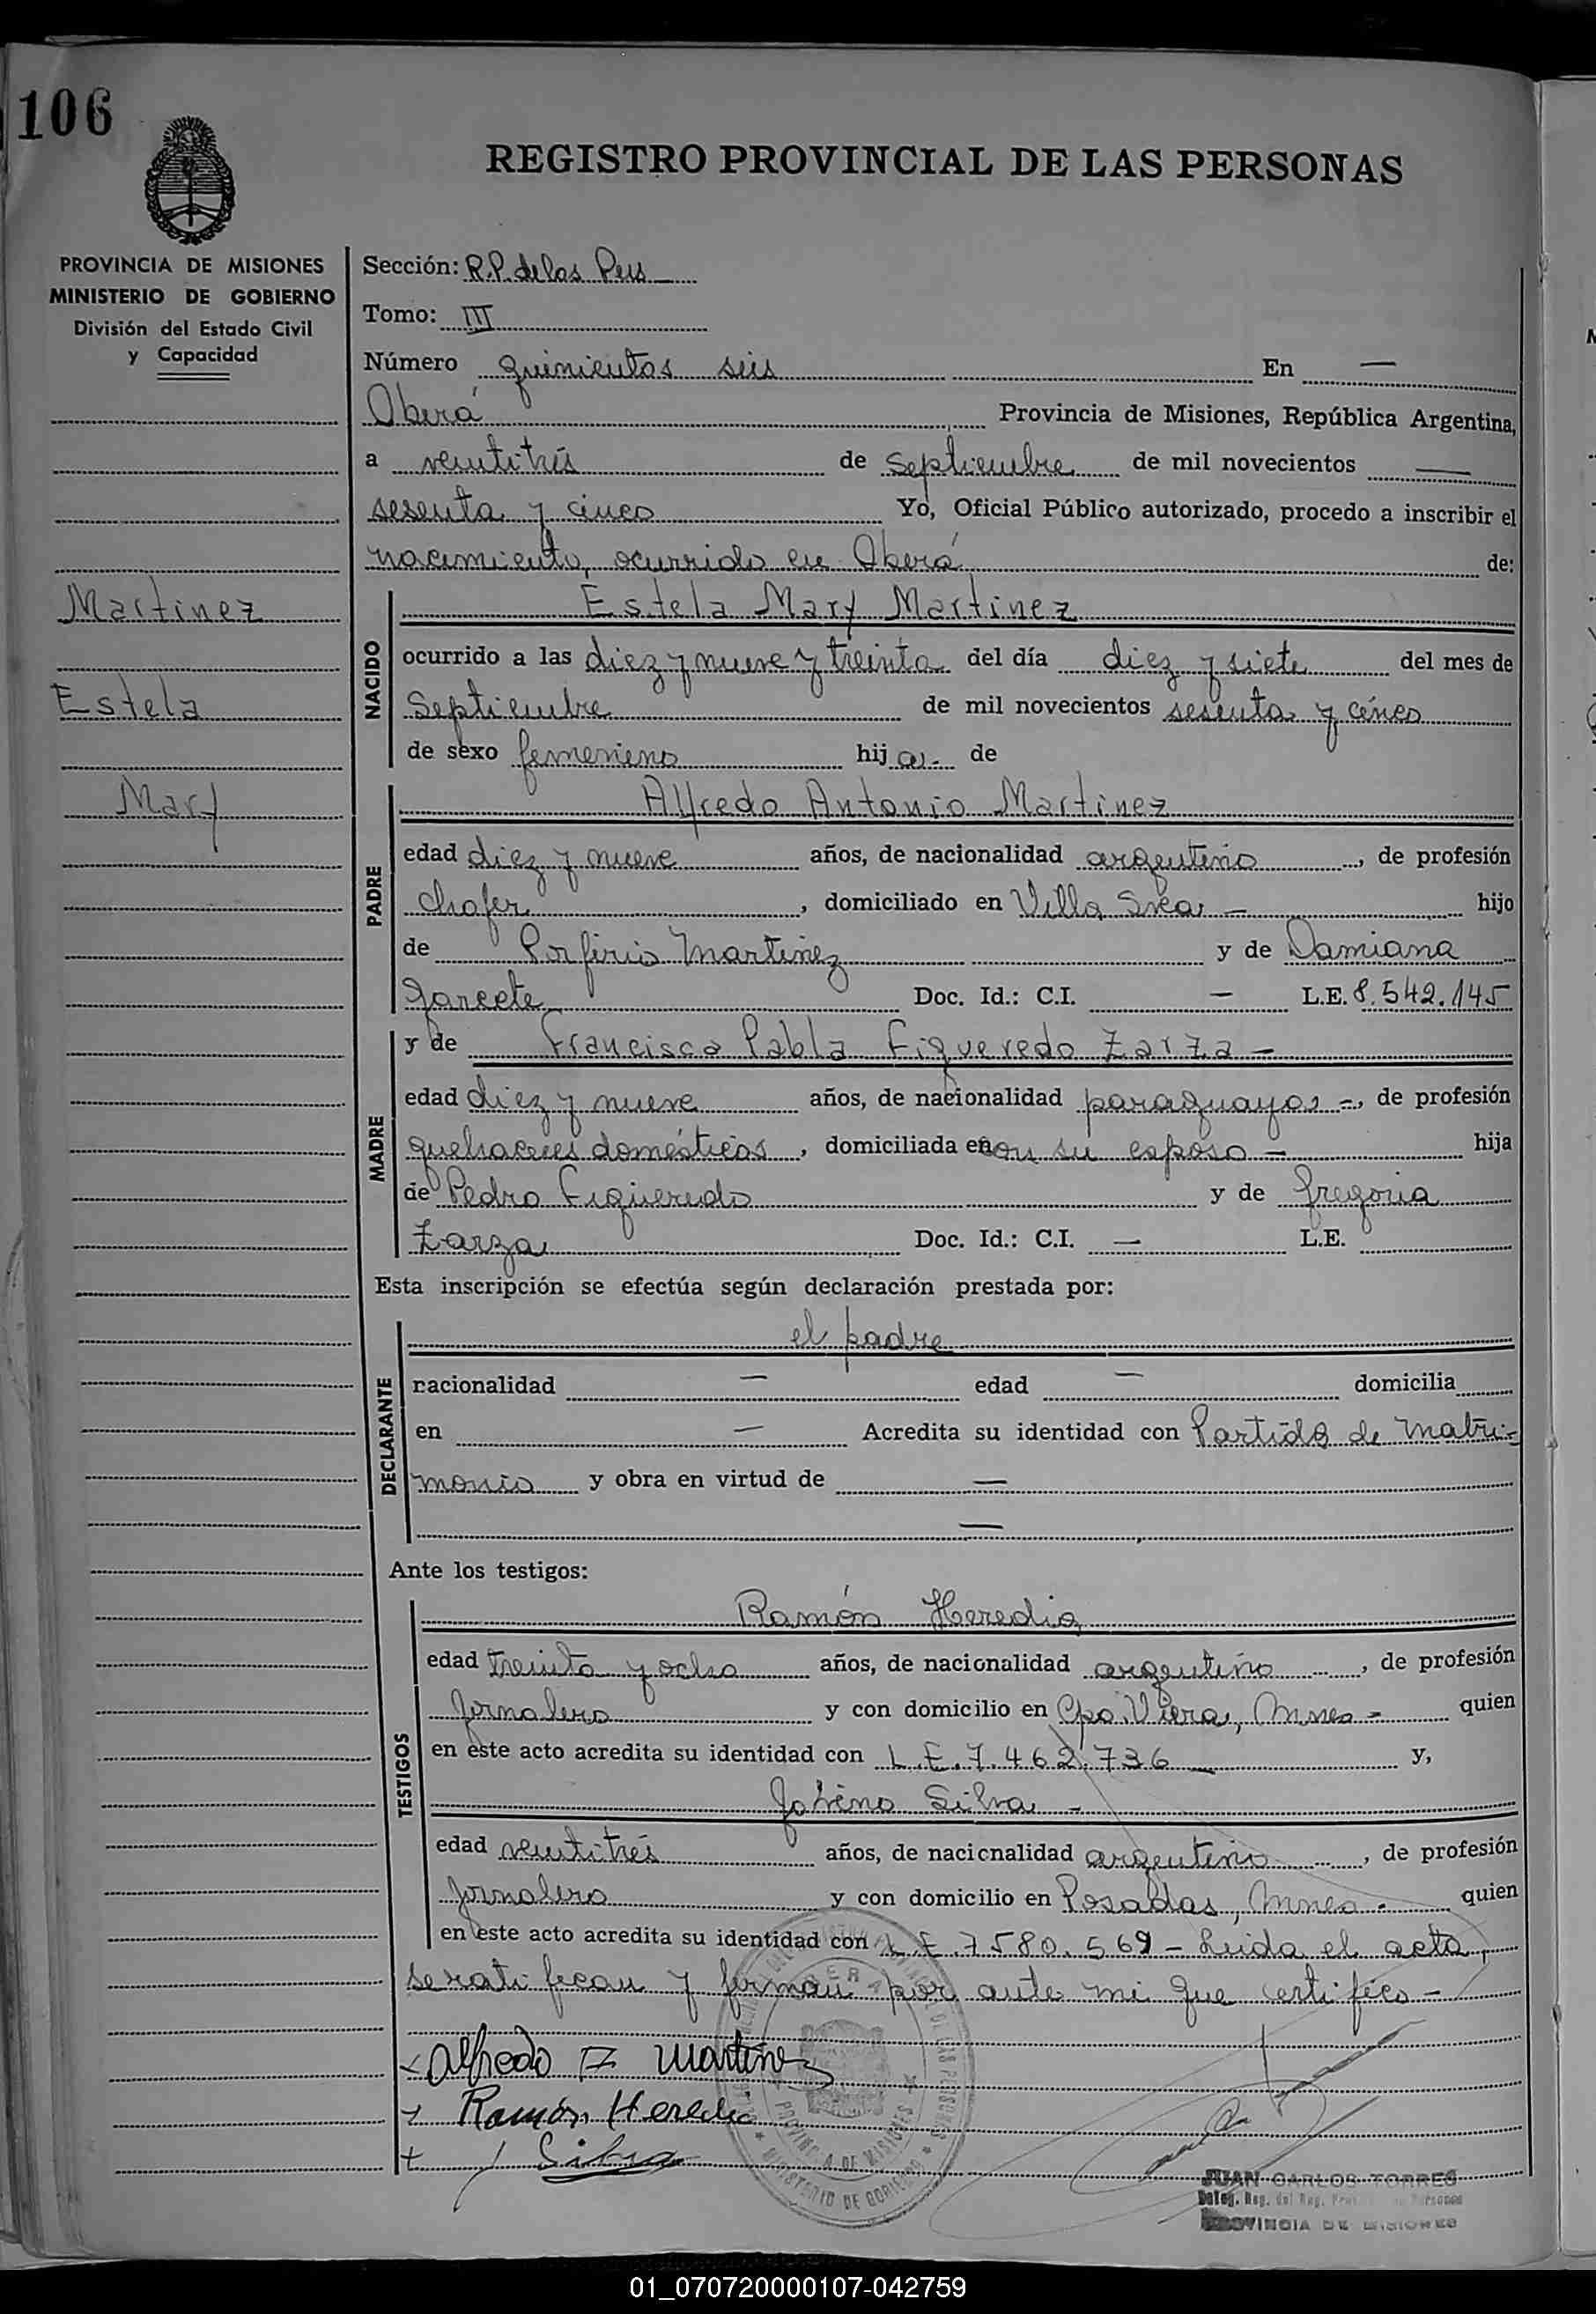 106
REGISTRO PROVINCIAL DE LAS PERSONAS
PROVINCIA DE MISIONES
MINISTERIO DE GOBIERNO
División del Estado Civil
y Capacidad
Martinez
Estela
Mary
Sección: R.P. de las Pers
Tomo: III
Número quinientos seis En —
Oberá Provincia de Misiones, República Argentina,
a veintitrés de Septiembre de mil novecientos —
sesenta y cinco Yo, Oficial Público autorizado, procedo a inscribir el
nacimiento, ocurrido en Oberá de:
NACIDO
Estela Mary Martinez
ocurrido a las diez y nueve y treinta del día diez y siete del mes de
Septiembre de mil novecientos sesenta y cinco
de sexo femenino hij a.- de
PADRE
Alfredo Antonio Martinez
edad diez y nueve años, de nacionalidad argentino, de profesión
chofer, domiciliado en Villa Svea - hijo
de Porfirio Martinez y de Damiana
Garcete Doc. Id.: C.I. — L.E. 8.542.145
MADRE
y de Francisca Pabla Figueredo Zarza -
edad diez y nueve años, de nacionalidad paraguaya -, de profesión
quehaceres domésticos, domiciliada en con su esposo - hija
de Pedro Figueredo y de Gregoria
Zarza Doc. Id.: C.I. — L.E.
Esta inscripción se efectúa según declaración prestada por:
DECLARANTE
el padre
nacionalidad — edad — domicilia
en — Acredita su identidad con Partida de matri-
monio y obra en virtud de —
—
Ante los testigos:
TESTIGOS
Ramón Heredia
edad treinta y ocho años, de nacionalidad argentino, de profesión
Jornalero y con domicilio en Cpo. Viera, Mnes - quien
en este acto acredita su identidad con L.E. 7.462.736 — y,
Silva -
edad veintitrés años, de nacionalidad argentino, de profesión
Jornalero y con domicilio en Posadas, Mnes - quien
en este acto acredita su identidad con L.E. 7580.569 - Leida el acta,
se ratifican y firman por ante mi que certifico -
Alfredo A Martinez
Ramón Heredia
Silva
PROVINCIA DE MISIONES
MINISTERIO DE GOBIERNO
JUAN CARLOS TORRES
Deleg. Reg. del Reg. Personas
PROVINCIA DE MISIONES
01_070720000107-042759